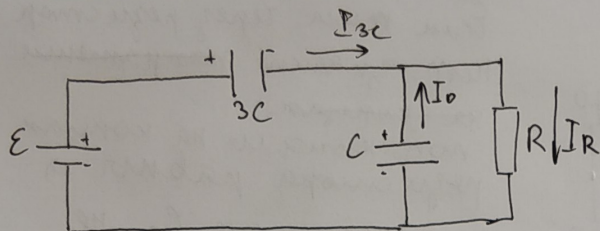 I3C
+
3C
ε
+
-
C
+
-
I0
R
IR